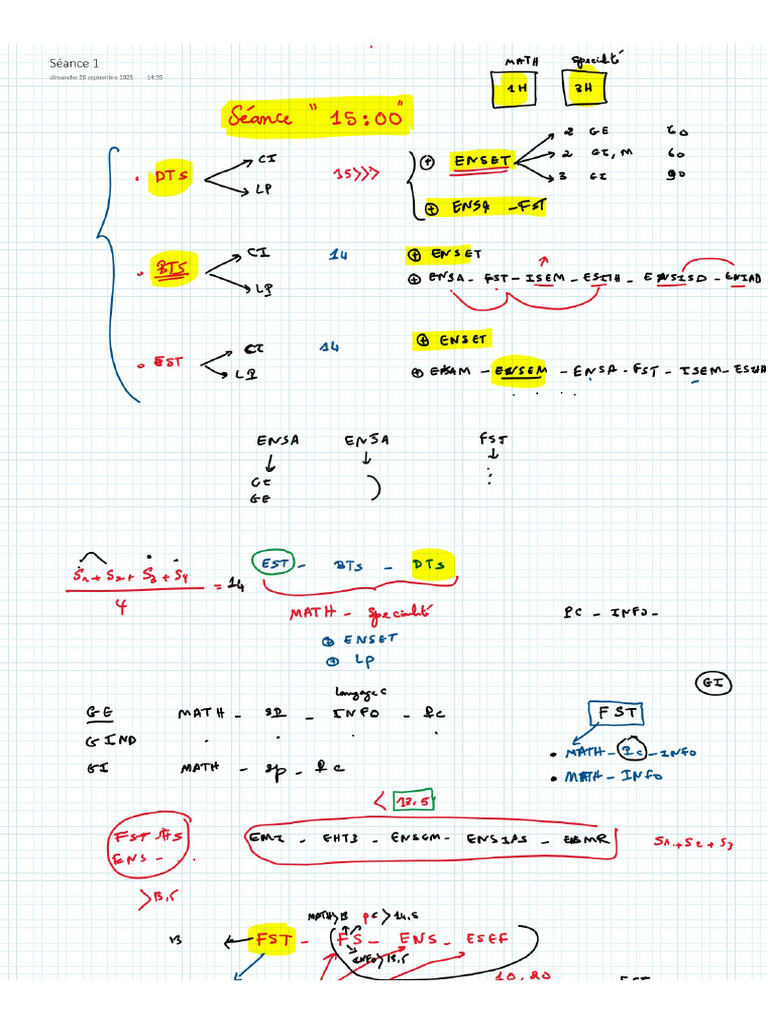 Séance 1
dimanche 28 septembre 2025 14:35
MATH Specialité
1H 3H
Séance "15:00"
DTS CI LP 15>>>
⊕ ENSET
2 GE 60
2 GI, M 60
3 GI 90
⊕ ENSA - FST
BTS CI LP 14
⊕ ENSET
⊕ ENSA - FST - ISEM - ESITH - ENSISD - ENIAD
EST CI LP 14
⊕ ENSET
⊕ ENSAM - ENSEM - ENSA - FST - ISEM - ESITH
ENSA ENSA FST
GE
GE
S1 + S2 + S3 + S4
4
= 14
EST - BTS - DTS
MATH - Specialité
PC - INFO -
ENSET
LP
GI
langage C
GE MATH - SP - INFO - PC
FST
GIND
MATH - PC - INFO
GI MATH - SP - PC
MATH - INFO
< 13.5
FST
ENS - ..
EMI - EHTP - ENSEM - ENSIAS - ENSMR
S1 + S2 + S3
>13,5
MATH>13 PC>14,5
13 FST - FS - ENS - ESEF
INFO>13,5
10.20
FST